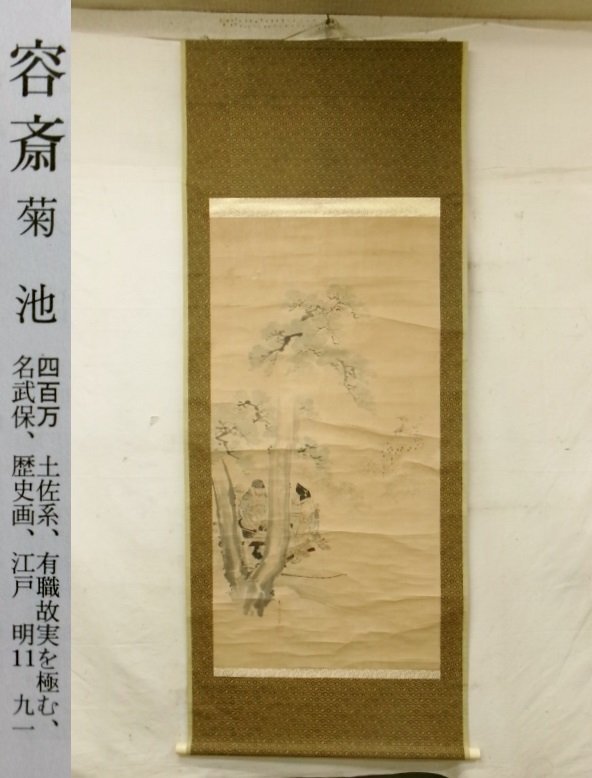 容斎
菊池
四百万 土佐系、有職故実を極む、
名武保、歴史画、江戸 明11 九一